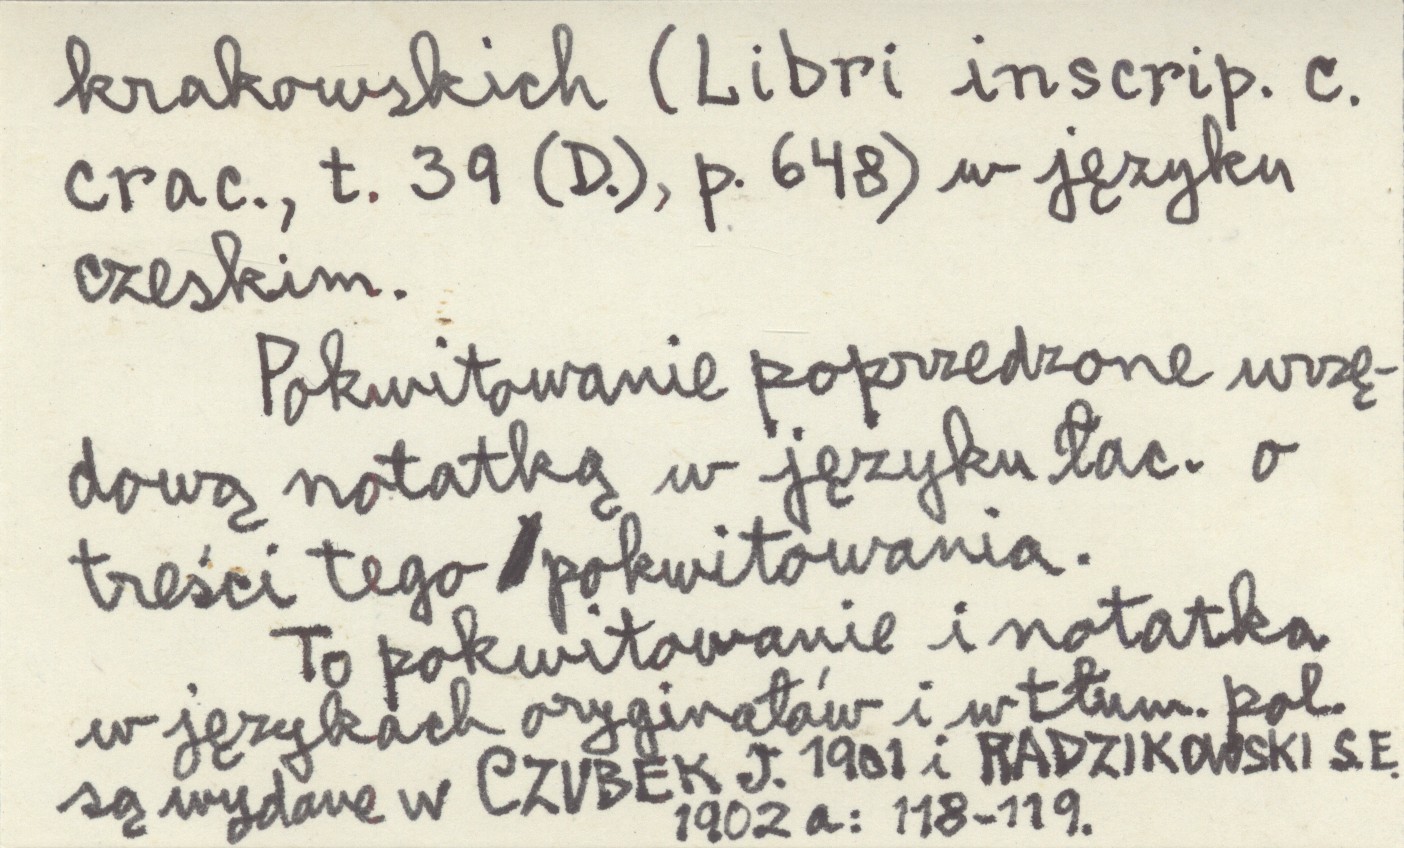 krakowskich (Libri inscrip. c.
crac., t. 39 (D.), p. 648) w języku
czeskim.
Pokwitowanie poprzedzone urzę-
dową notatką w języku łac. o
treści tego pokwitowania.
To pokwitowanie i notatka
w językach oryginałów i w tłum. pol.
są wydane w CZUBEK J. 1901 i RADZIKOWSKI S.E.
1902 a: 118-119.